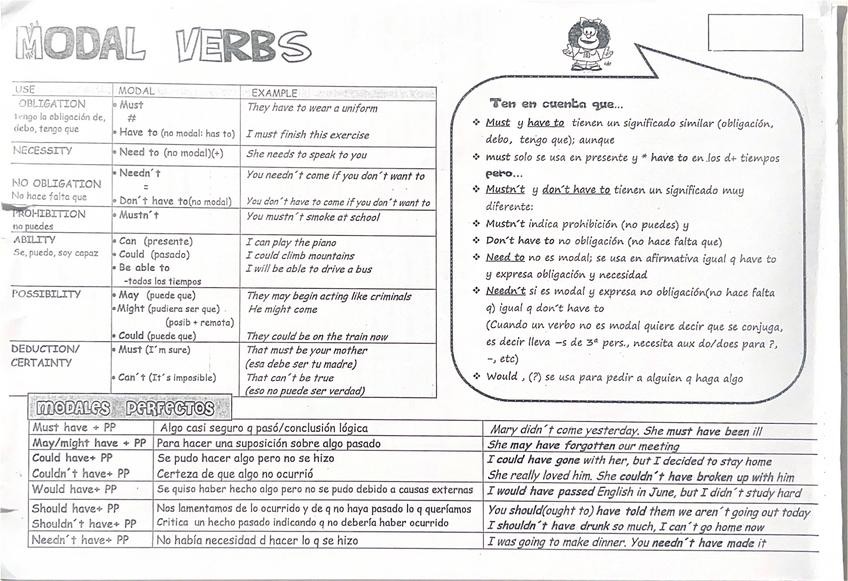 MODAL VERBS
USE MODAL EXAMPLE
OBLIGATION
Tengo la obligación de,
debo, tengo que
• Must
#
• Have to (no modal: has to)
They have to wear a uniform
I must finish this exercise
NECESSITY
• Need to (no modal)(+)
She needs to speak to you
NO OBLIGATION
No hace falta que
• Needn´t
=
• Don´t have to(no modal)
You needn´t come if you don´t want to
You don´t have to come if you don´t want to
PROHIBITION
no puedes
• Mustn´t
You mustn´t smoke at school
ABILITY
Se, puedo, soy capaz
• Can (presente)
• Could (pasado)
• Be able to
-todos los tiempos
I can play the piano
I could climb mountains
I will be able to drive a bus
POSSIBILITY
• May (puede que)
• Might (pudiera ser que)
(posib + remota)
• Could (puede que)
They may begin acting like criminals
He might come
They could be on the train now
DEDUCTION/
CERTAINTY
• Must (I´m sure)
• Can´t (It´s imposible)
That must be your mother
(esa debe ser tu madre)
That can´t be true
(eso no puede ser verdad)
Ten en cuenta que...
❖ Must y have to tienen un significado similar (obligación,
debo, tengo que); aunque
❖ must solo se usa en presente y * have to en los d+ tiempos
pero...
❖ Mustn´t y don´t have to tienen un significado muy
diferente:
❖ Mustn´t indica prohibición (no puedes) y
❖ Don´t have to no obligación (no hace falta que)
❖ Need to no es modal; se usa en afirmativa igual q have to
y expresa obligación y necesidad
❖ Needn´t si es modal y expresa no obligación(no hace falta
q) igual q don´t have to
(Cuando un verbo no es modal quiere decir que se conjuga,
es decir lleva –s de 3ª pers., necesita aux do/does para ?,
-, etc)
❖ Would , (?) se usa para pedir a alguien q haga algo
MODALES PERFECTOS
Must have + PP Algo casi seguro q pasó/conclusión lógica Mary didn´t come yesterday. She must have been ill
May/might have + PP Para hacer una suposición sobre algo pasado She may have forgotten our meeting
Could have+ PP Se pudo hacer algo pero no se hizo I could have gone with her, but I decided to stay home
Couldn´t have+ PP Certeza de que algo no ocurrió She really loved him. She couldn´t have broken up with him
Would have+ PP Se quiso haber hecho algo pero no se pudo debido a causas externas I would have passed English in June, but I didn´t study hard
Should have+ PP Nos lamentamos de lo ocurrido y de q no haya pasado lo q queríamos You should(ought to) have told them we aren´t going out today
Shouldn´t have+ PP Critica un hecho pasado indicando q no debería haber ocurrido I shouldn´t have drunk so much, I can´t go home now
Needn´t have+ PP No había necesidad d hacer lo q se hizo I was going to make dinner. You needn´t have made it